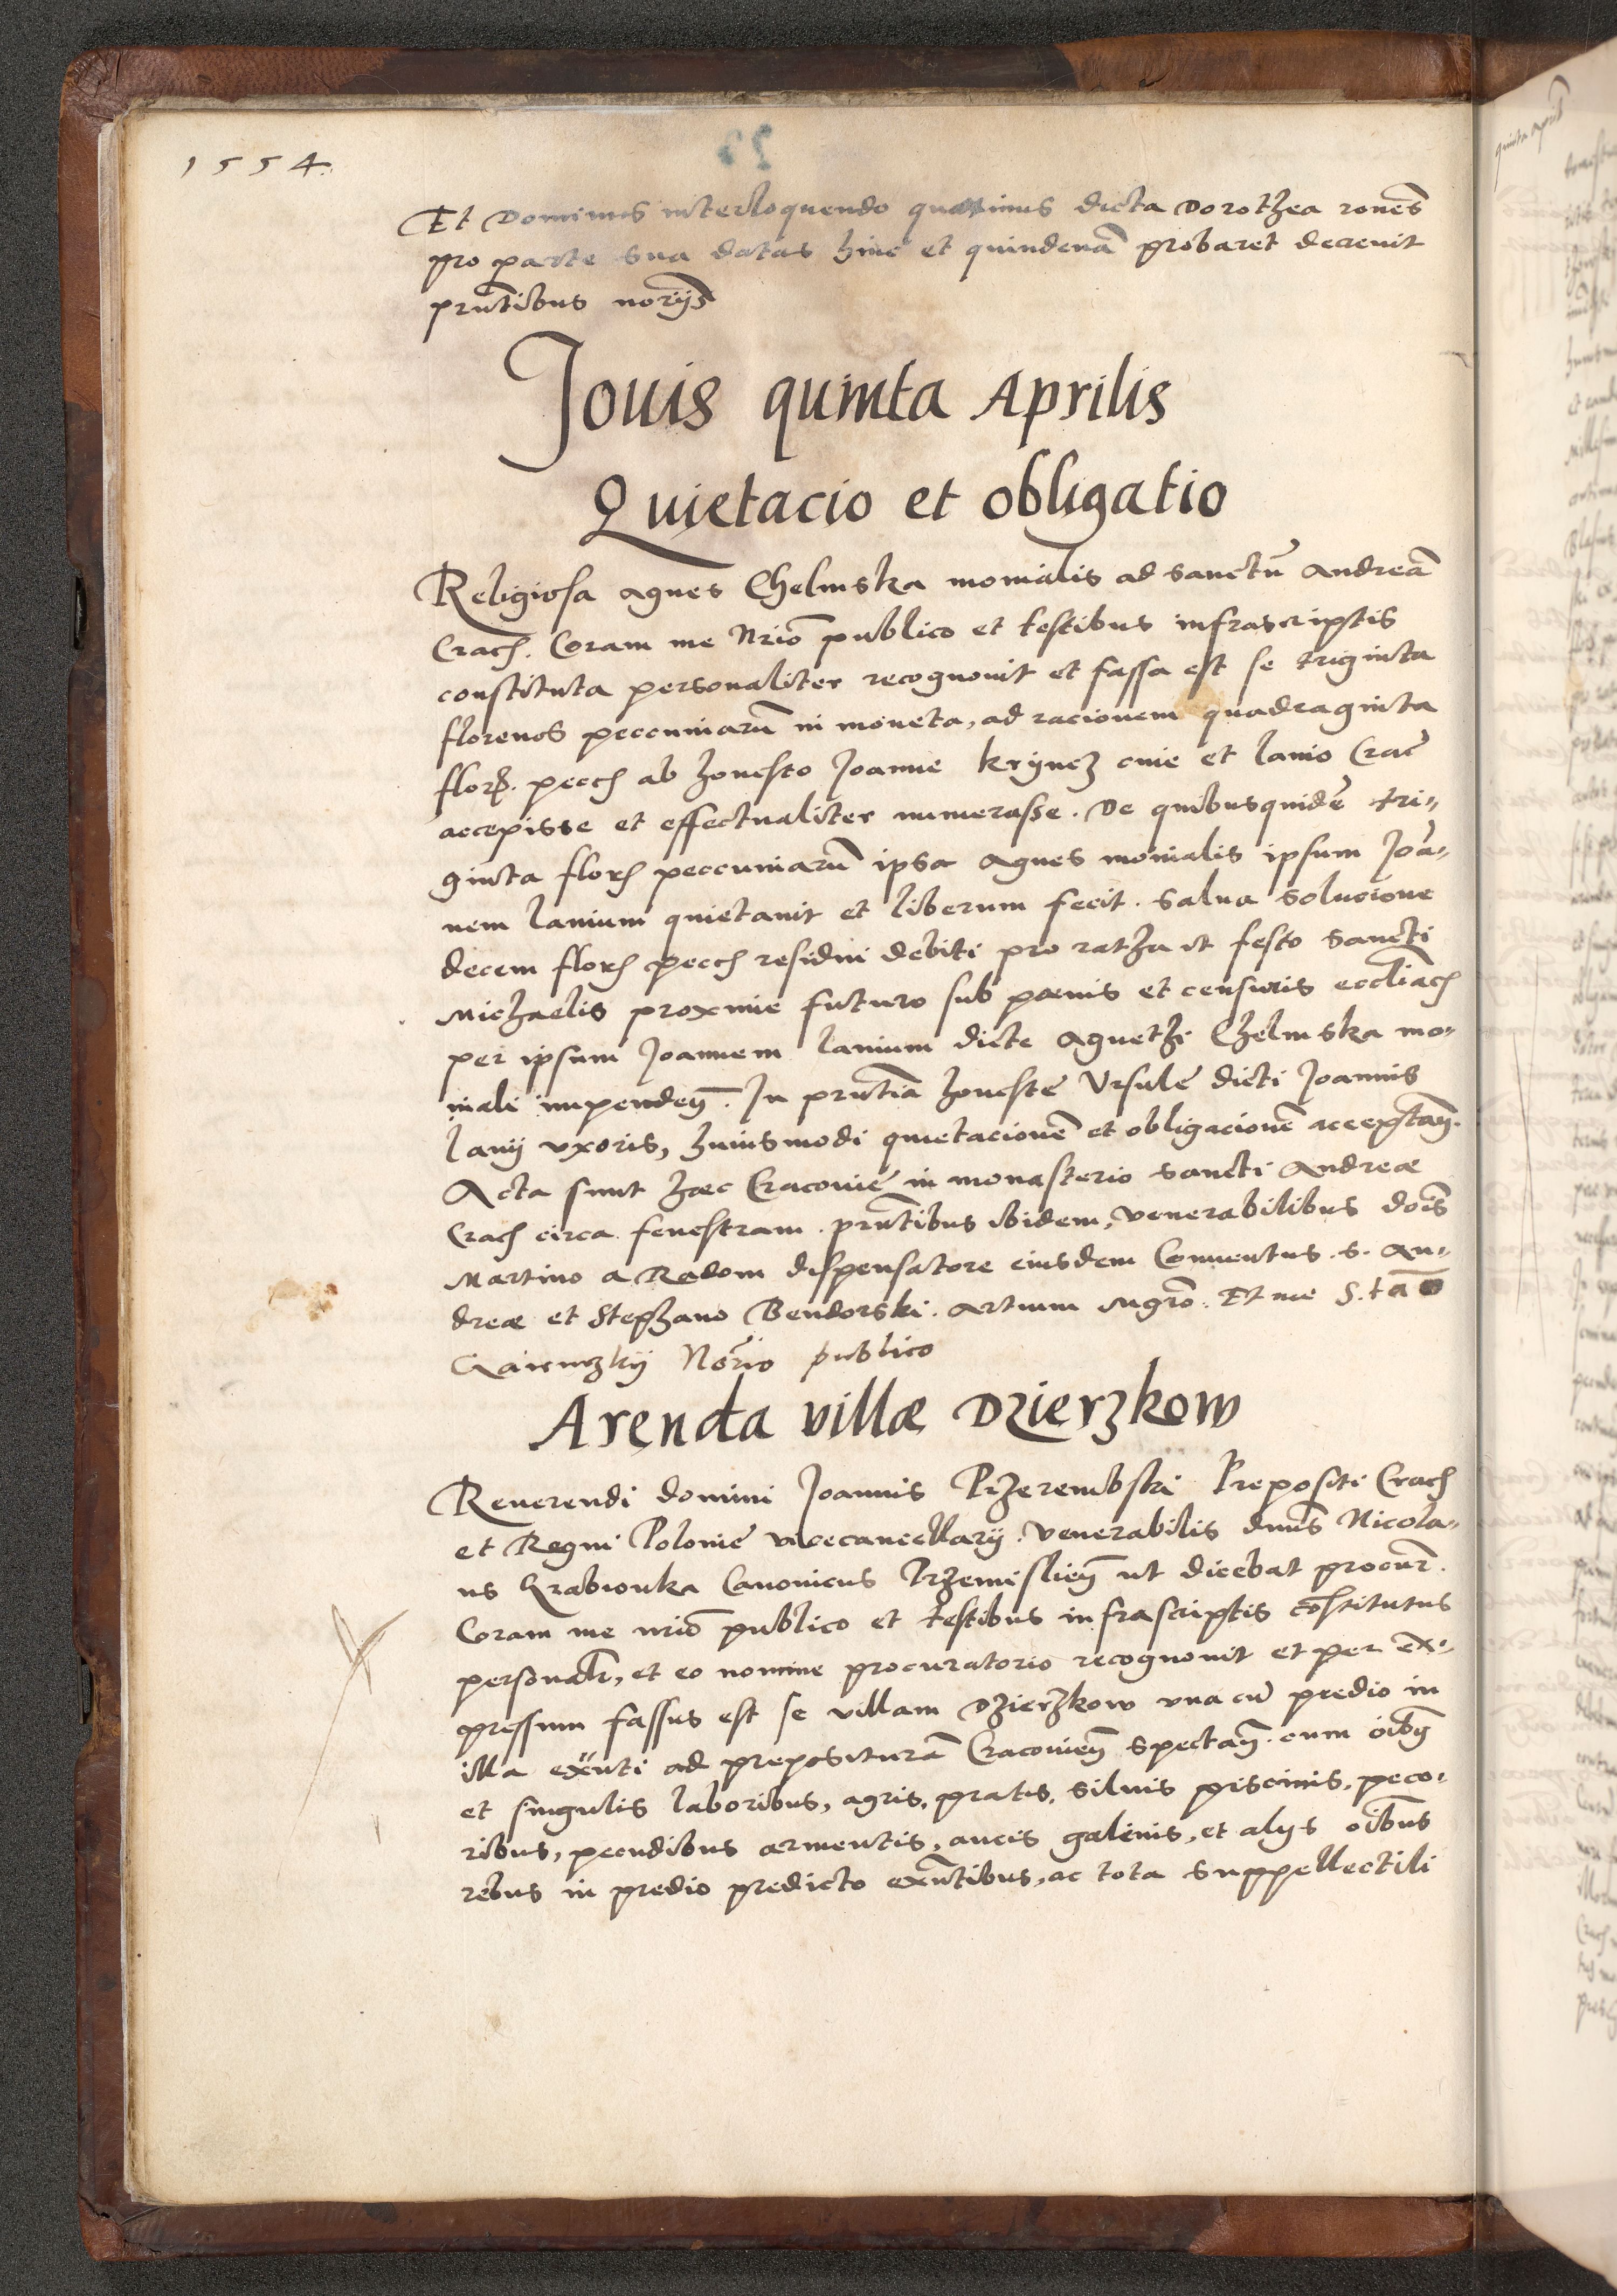 1554.
Et Dominus interloquendo quatinus dicta Dorothea rones
pro parte sua datas hinc et quindenā probaret decrevit
prntibus norijs
Jouis quinta Aprilis
Quietacio et obligatio
Religiosa Agnes Chelmska monialis ad Sanctū Andreā
Crach. Coram me Nrio publico et testibus infrascriptis
constituta personaliter recognouit et fassa est se triginta
florenos peccuniarū in moneta, ad racionem quadraginta
flor. pecch ab honesto Joanne Krijncz ciue et lanio Crac
accepisse et effectualiter numerasse. De quibusquidē tri„
ginta florh peccuniarū ipsa Agnes monialis ipsum Joā„
nem lanium quietauit et liberum fecit. Salua solucione
decem florh pecch residui debiti pro ratha et festo Sancti
Michaelis proxime futuro sub poenis et censuris eccliach
per ipsum Joannem lanium dicte Agnethi Chelmska mo„
niali impenden. In prntia honeste Vrsule dicti Joannis
lanij vxoris, huiusmodi quietacionē et obligacionē acceptan.
Acta sunt haec Cracouie in monasterio Sancti Andreae
Crach circa fenestram. prntibus ibidem, venerabilibus dois
Martino a Radom dispensatore eiusdem Conuentus. s. An„
dreae et Stephano Bendorski. Artium Mgro. Et me S. ta
Nōrio publico
Arenda villae Dzierzkow
Reuerendi domini Joannis Przerembski Prepositi Crach
et Regni Polonie vicecancellarij. Venerabilis dnus Nicola„
us Hrabionka Canonicus Przemislien ut dicebat procur.
Coram me nrio publico et testibus infrascriptis cōstitutus
personalr, et eo nomine procuratorio recognouit et per ex„
pressum fassus est se villam Dzierzkow vna cū predio in
illa exnti ad prepositurā Cracouien spectan. cum oibg
et singulis laboribus, agris, pratis, siluis piscinis, peco„
ribus, pecudibus armentis, aucis galinis, et alijs oibus
rebus in predio predicto exntibus, ac tota suppellectili
quinta april